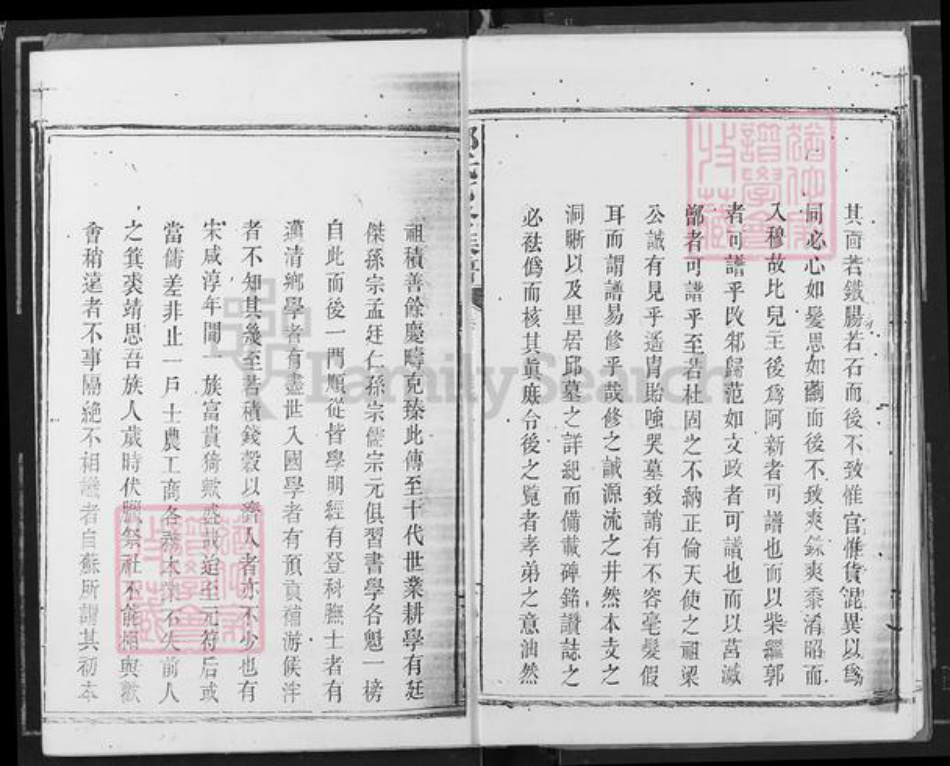 其面若鐵腸若石而後不致惟官惟貨混異以爲
同必心如髮思如繭而後不致爽銖爽黍淆昭而
入穆故比兒王後爲阿新者可譜也而以柴繼郭
者可譜乎改邾歸范如文政者可譜也而以莒滅
鄫者可譜乎至若杜固之不納正倫天使之祖梁
公誠有見乎遙冑貽嗤哭墓致誚有不容毫髮假
耳而謂譜易修乎哉修之誠源流之井然本支之
洞晰以及里居邱墓之詳紀而備載碑銘讚誌之
必祛僞而核其眞庶令後之覽者孝弟之意油然
祖積善餘慶疇克臻此傳至十代世業耕學有廷
傑孫宗孟廷仁孫宗儒宗元俱習書學各魁一榜
自此而後一門順從皆學明經有登科膴士者有
漕清鄉學者有盡世入國學者有預貢補游候泮
者不知其幾至若積錢穀以 人者亦不少也有
宋咸淳年間一族富貴猗歟盛哉迨至元符后或
當儔差非止一戶士農工商各務本業不失前人
之箕裘靖思吾族人歲時伏臘祭社不能相與歡
會稍遠者不事隔絶不相識者自蘇所謂其初本
FamilySearch